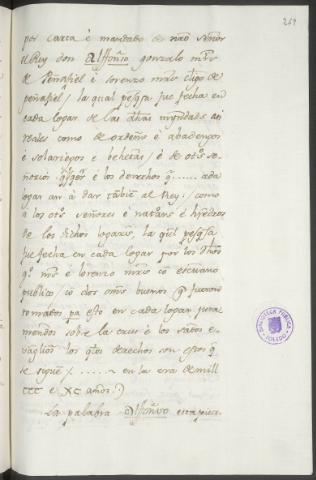 269
por carta è mandado de não señor
el Rey don Alffonso gonzalo mrz
de Peñafiel è lorenzo mrz clígo de
peñafiel / la qual pesqsa fue fecha en
cada logar de las dhas myndads asi
reales como de ordens è abadengos
è solariegos e behetras / è de otºs se-
norios è los derechos q ...... cada
logar an à dar tâbiê al Rey / como
à los otºs señores è naturas è herederos
de los dichos logares, la ql pesqsa
fue fecha en cada logar por los dhos
gº mrz è lorenzo mrz cõ escrivano
publico / cõ dos omes buenos q fueron
tomados pa esto en cada logar jura-
mentados sobre la cruz è los santos e-
vãglios los qles derechos son estos q
se siguen / ...... en la era de mill
CCC è XC años.)
La palabra Alffonso esta picca.
BIBLIOTECA PUBLICA
TOLEDO